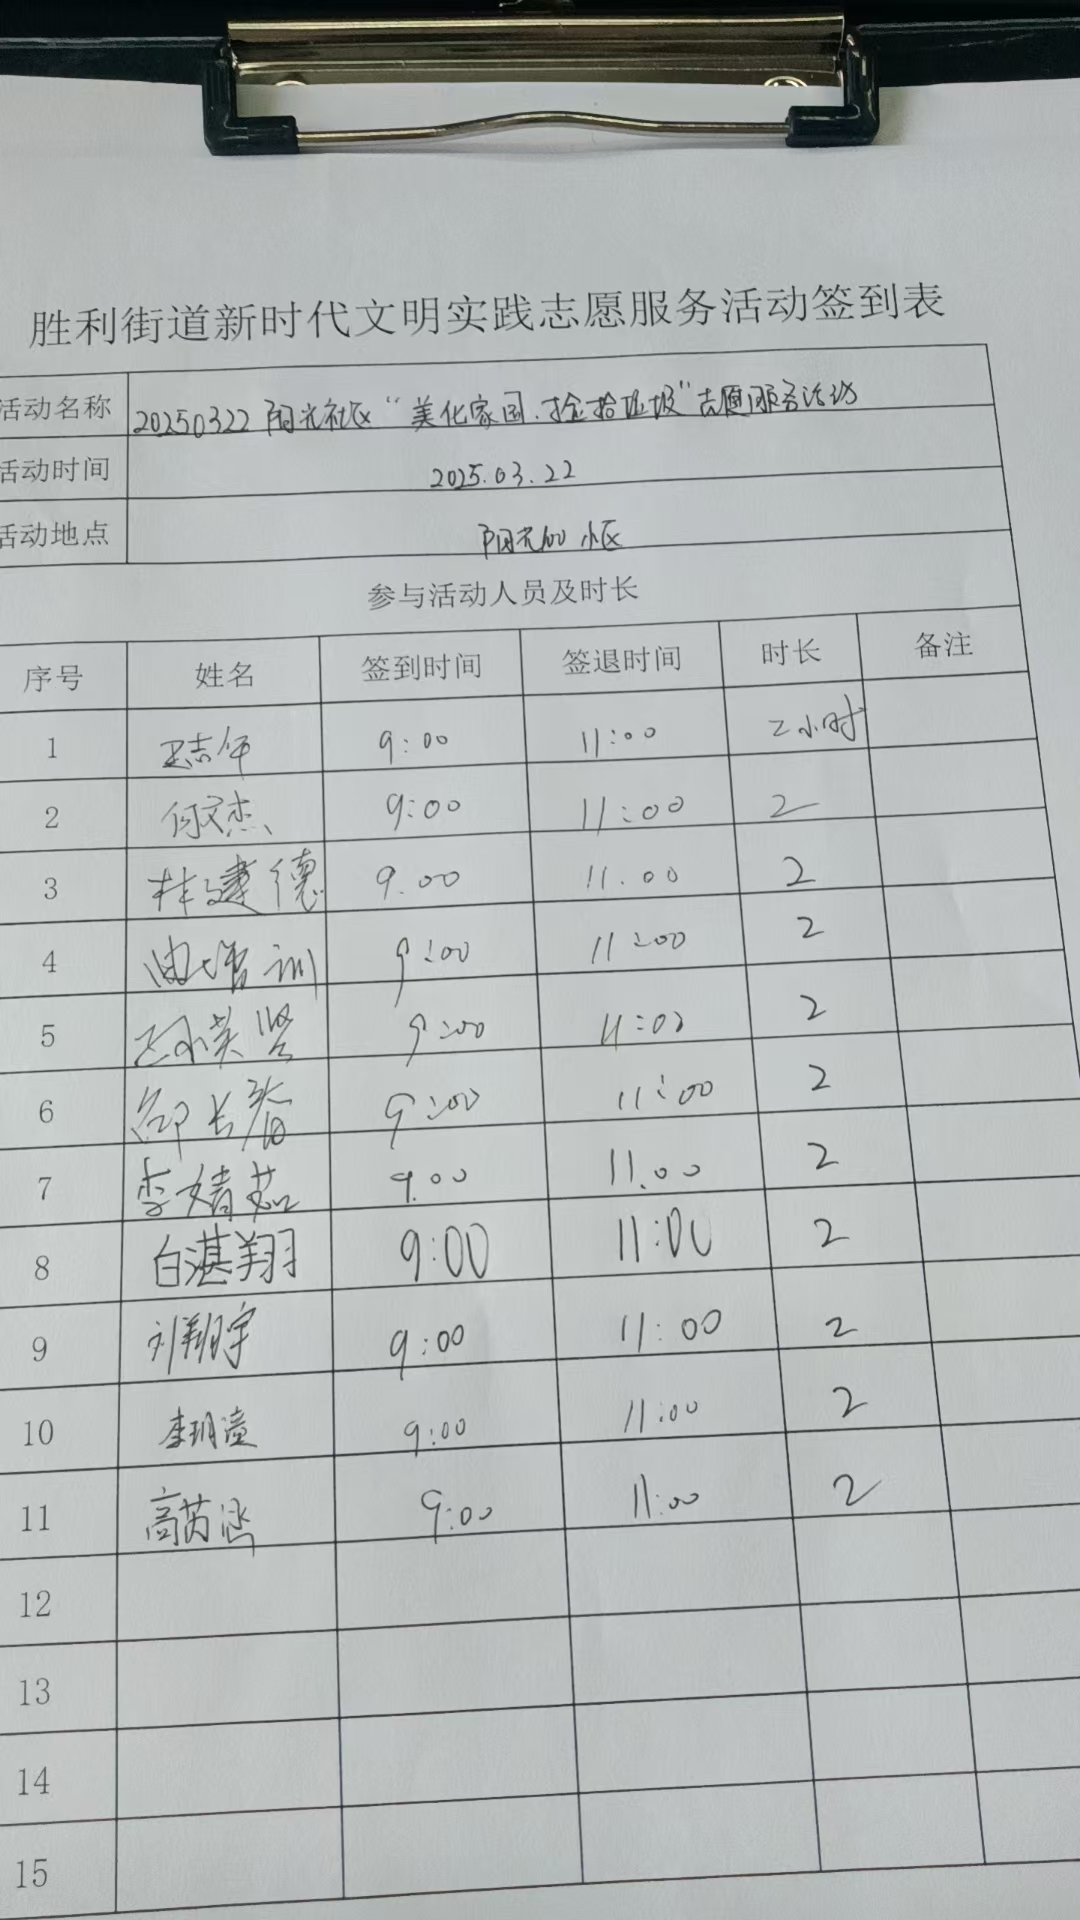 胜利街道新时代文明实践志愿服务活动签到表
活动名称 20250322 阳光社区“美化家园.捡拾垃圾”志愿服务活动
活动时间 2025.03.22
活动地点 阳光100 小区
参与活动人员及时长
序号 姓名 签到时间 签退时间 时长 备注
1 王志年 9:00 11:00 2小时
2 何文杰 9:00 11:00 2
3 林建德 9.00 11.00 2
4 曲培训 9:00 11:00 2
5 9:00 11:00 2
6 邵长春 9:00 11:00 2
7 李婧茹 9.00 11.00 2
8 白湛翔 9:00 11:00 2
9 刘翔宇 9:00 11:00 2
10 李玥潼 9:00 11:00 2
11 高芮涵 9:00 11:00 2
12
13
14
15